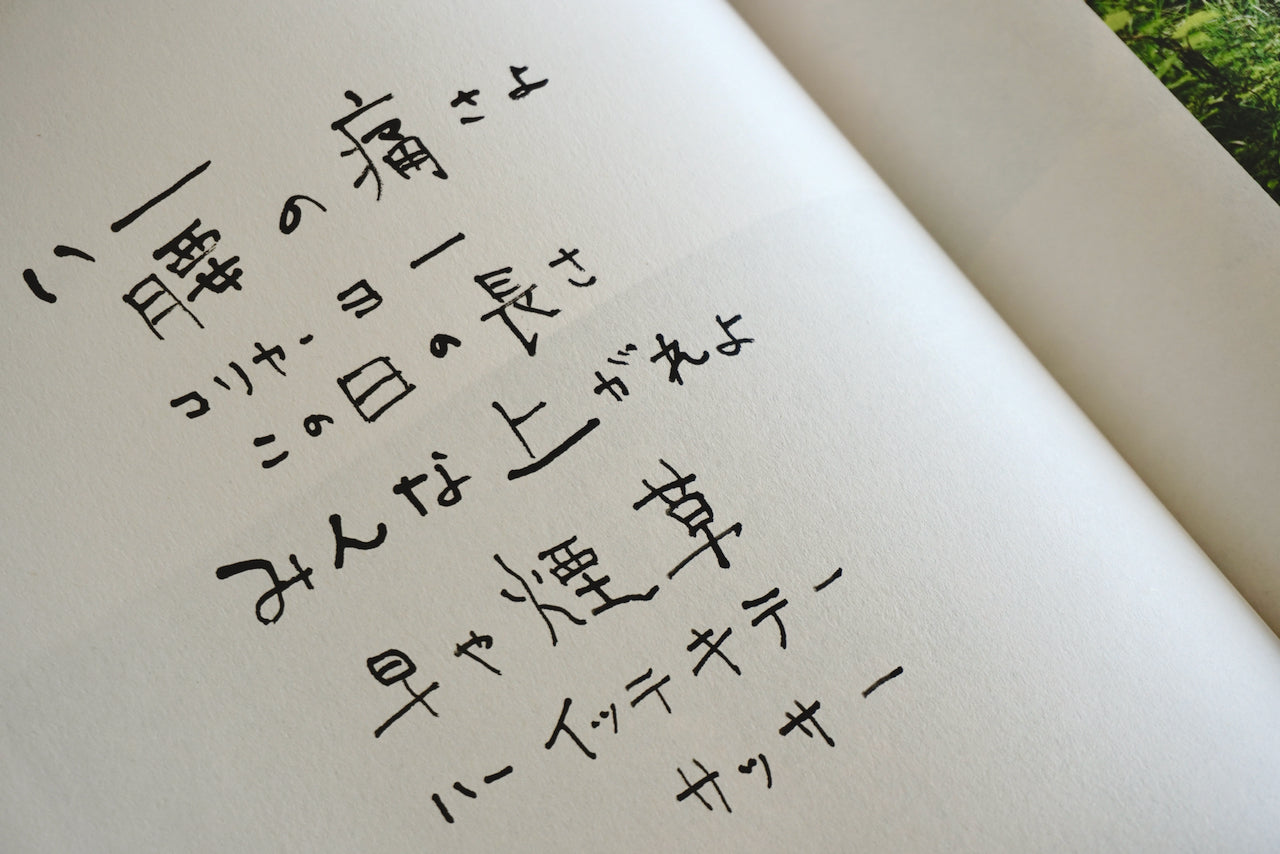 ハー腰の痛さよ
コリャーヨー
この日の長さ
みんな上がれよ
早や煙草
ハーイッテキテー
サッサー